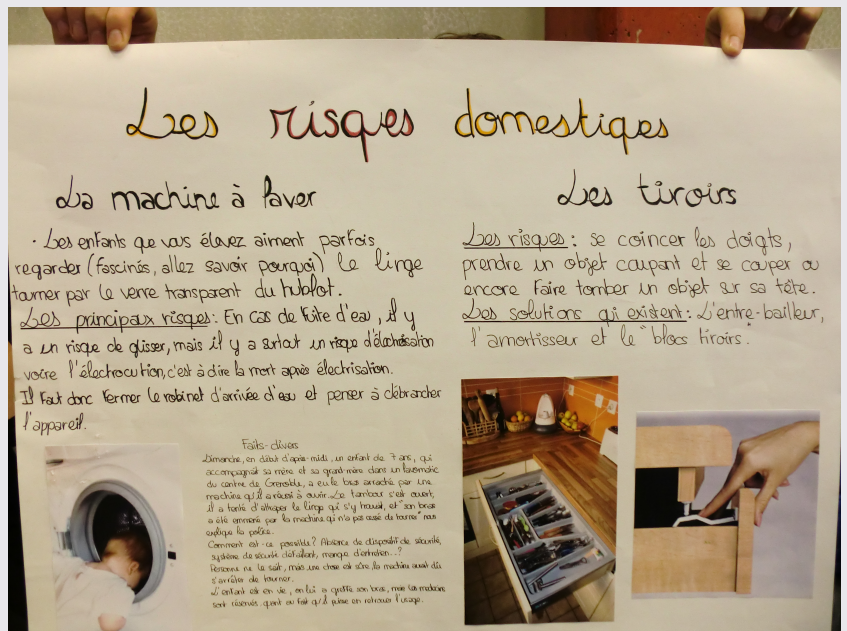 Les risques domestiques
La machine à laver
· Les enfants que vous élevez aiment parfois
regarder (fascinés, allez savoir pourquoi) le linge
tourner par le verre transparent du hublot.
Les principaux risques: En cas de fuite d'eau, il y
a un risque de glisser, mais il y a surtout un risque d'électrisation
voire l'électrocution, c'est à dire la mort après électrisation.
Il faut donc fermer le robinet d'arrivée d'eau et penser à débrancher
l'appareil.
Faits-divers
Dimanche, en début d'après-midi, un enfant de 7 ans, qui
accompagnait sa mère et sa grand-mère dans un lavomatic
du centre de Grenoble, a eu le bras arraché par une
machine qu'il a réussi à ouvrir. Le tambour s'est ouvert,
il a tenté d'attraper le linge qui s'y trouvait, et "son bras
a été emmené par la machine qui n'a pas cessé de tourner" nous
explique la police.
Comment est-ce possible? Absence de dispositif de sécurité,
système de sécurité défaillant, manque d'entretien...?
Personne ne le sait, mais une chose est sûre, la machine aurait dû
s'arrêter de tourner.
L'enfant est en vie, on lui a greffé son bras, mais les médecins
sont réservés quant au fait qu'il puisse en retrouver l'usage.
Les tiroirs
Les risques: se coincer les doigts,
prendre un objet coupant et se couper ou
encore faire tomber un objet sur sa tête.
Les solutions qui existent: L'entre-bailleur,
l'amortisseur et le "blocs tiroirs".